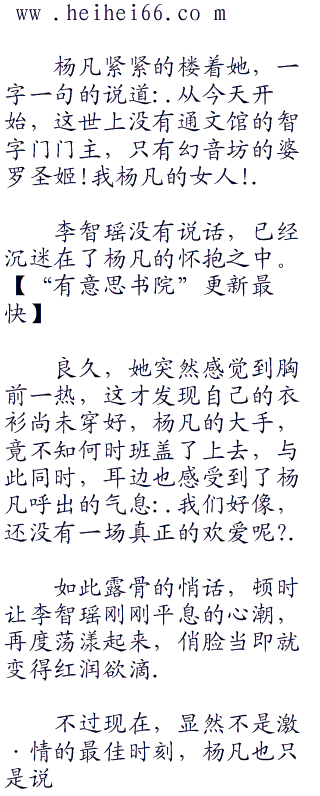 www.heihei66.com
杨凡紧紧的楼着她，一
字一句的说道:.从今天开
始，这世上没有通文馆的智
字门门主，只有幻音坊的婆
罗圣姬!我杨凡的女人!.
李智瑶没有说话，已经
沉迷在了杨凡的怀抱之中。
【“有意思书院”更新最
快】
良久，她突然感觉到胸
前一热，这才发现自己的衣
衫尚未穿好，杨凡的大手，
竟不知何时班盖了上去，与
此同时，耳边也感受到了杨
凡呼出的气息:.我们好像，
还没有一场真正的欢爱呢?.
如此露骨的悄话，顿时
让李智瑶刚刚平息的心潮，
再度荡漾起来，俏脸当即就
变得红润欲滴.
不过现在，显然不是激
·情的最佳时刻，杨凡也只
是说